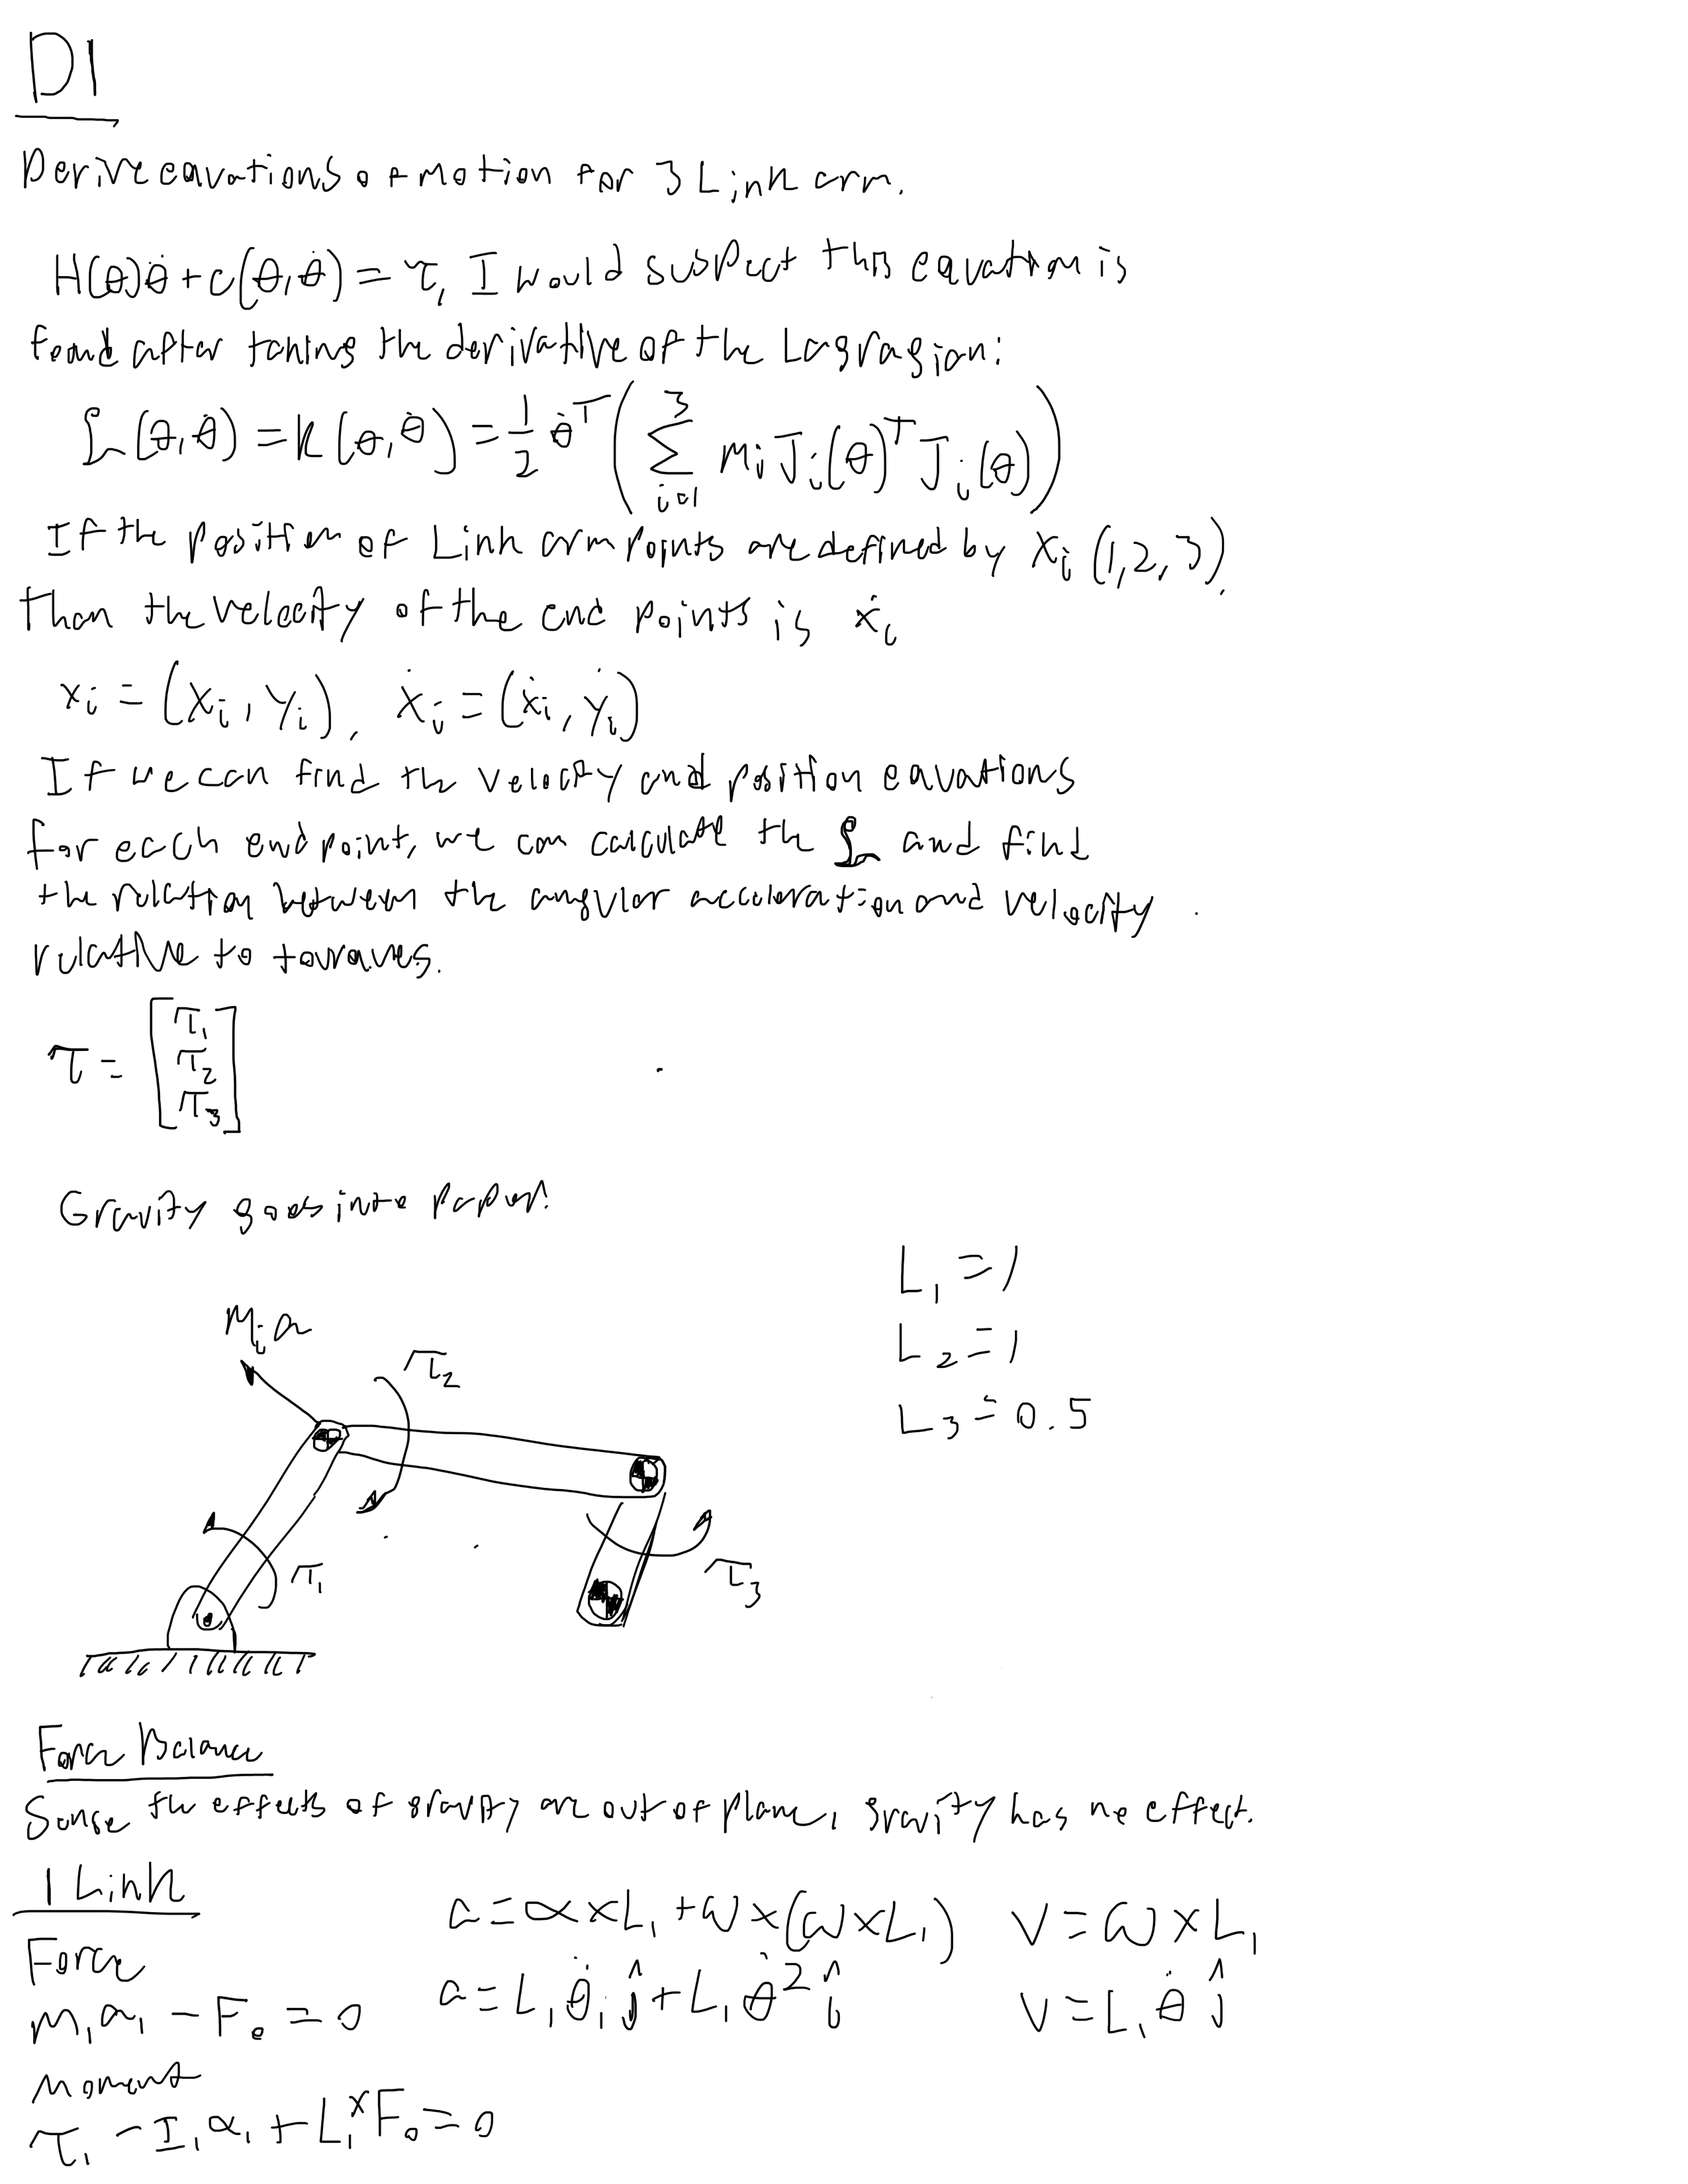 D1
Derive equations of motion for 3 Link arm.
H(θ)θ̈ + c(θ,θ̇) = τ, I would suspect this equation is
found after taking the derivative of the Lagragian:
ℒ(θ,θ̇) = K(θ,θ̇) = 1/2 θ̇ᵀ( Σ_{i=1}^{3} mᵢ Jᵢ(θ)ᵀ Jᵢ(θ) )
If the position of Link arm points are defined by Xᵢ (1,2,3),
than the velocity of the end points is ẋᵢ
xᵢ = (xᵢ, yᵢ), ẋᵢ = (ẋᵢ, ẏᵢ)
If we can find the velocity and position equations
for each end point, we can calculate the ℒ and find
the relation between the angular acceleration and velocity
relative to torques.
τ = [τ₁ τ₂ τ₃]
Gravity goes into paper!
L₁ = 1
L₂ = 1
L₃ = 0.5
Mᵢa
τ₂
τ₁
τ₃
Force Balance
Sense the effects of gravity are out of plane, gravity has no effect.
1 Link
a = α×L₁ + ω×(ω×L₁) V = ω×L₁
Force
a = L₁θ̈₁ĵ + L₁θ̇²î V = L₁θ̇ĵ
m₁a₁ − F₀ = 0
Moment
τ₁ − I₁α₁ + L₁×F₀ = 0